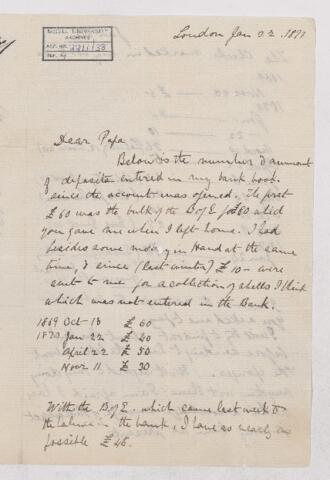 McGILL UNIVERSITY
ARCHIVES
ACC. NO. 2211/58
REF.
London Jan 22. 1871
Dear Papa
Below is the number & amount
of deposits entered in my bank book
since the account was opened. The first
£60 was the bulk of the B of E for £80 which
you gave me when I left home. I had
besides some money in Hand at the same
time, & since (last winter) £10 – were
sent to me for a collection of shells I think
which was not entered in the Bank.
1869 Oct 18 £ 60
1870 Jan 22 £ 40
April 22 £ 50
Novr 11 £ 30
With the B of E. which came last week &
the balance in the bank, I have as nearly as
possible £48.